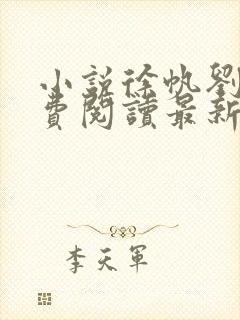 小說徐帆劉
費閱讀最新
李天軍